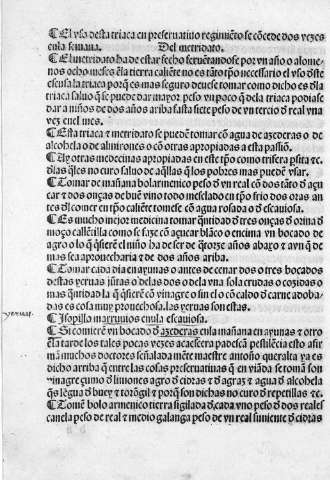 ¶ El vso desta triaca en preseruatiuo regimiẽto se cõcede dos vezes
enla semana. Del metridato.
¶ El metridato ha de estar fecho feruẽtandose por vn año o alome-
nos ocho meses ẽla tierra caliẽte no es tãto tp̃o necessario el vso deste
escusa la triaca porq̃ es mas seguro deuese tomar como dicho es dla
triaca saluo q̃ se puede dar mayor peso vn poco q̃ dela triaca podiase
dar a niños de dos años arriba fasta siete peso de vn tercio d̃ real vna
vez enel mes.
¶ Esta triaca & metridato se puedẽ tomar cõ agua de azederas o de
alcohela o de almirones o cõ otras apropiadas a esta passiõ.
¶ Ay otras medecinas apropiadas en este tp̃o como trifera psita &c.
dlas q̃les no curo saluo de aq̃llas q̃ los pobres mas puedẽ vsar.
¶ Tomar de mañana bolarmenico peso d̃ vn real cõ dos tãto d̃ açu
car & dos onças de buẽ vino todo mesclado en tp̃o frio dos oras an
tes d̃ comer en tp̃o caliẽte tomese cõ agua rosada o d̃ escauiosa.
¶ Es mucho mejor medicina tomar q̃ntidad d̃ tres onças d̃ orina d̃
moço callẽtilla como se faze cõ açucar blãco o encima vn bocado de
agro o lo q̃ q̃siere el niño ha de ser de q̃torze años abaxo & avn q̃ de
mas sea aprouecharia & de dos años arriba.
¶ Tomar cada dia en ayunas o antes de cenar dos o tres bocados
destas yeruas jũtas o delas dos o dela vna sola crudas o cozidas o
mas q̃ntidad la q̃ q̃siere cõ vinagre o sin el o cõ caldo d̃ carne adoba-
das es cosa muy prouechosa. las yeruas son estas.
yeruas
¶ Ysopilla marruuios enula escauiosa.
¶ Si comierẽ vn bocado d̃ azederas enla mañana en ayunas & otro
ẽla tarde los tales pocas vezes acaescera padescã pestilẽcia esto afir
mã muchos doctores señalada mẽte maestre antoño queralta ya es
dicho arriba q̃ entre las cosas preseruatiuas q̃ en viãda se tomã son
vinagre çumo d̃ limones agro d̃ cidras & d̃ agraz & agua d̃ alcohela
q̃s lẽgua d̃ buey & torõgil & porq̃ son dichas no curo d̃ repetillas &c.
¶ Tomẽ bolo armenico tierra sigilada d̃ cada vno peso d̃ dos reales
canela peso de real & medio galanga peso de vn real simiente d̃ cidras